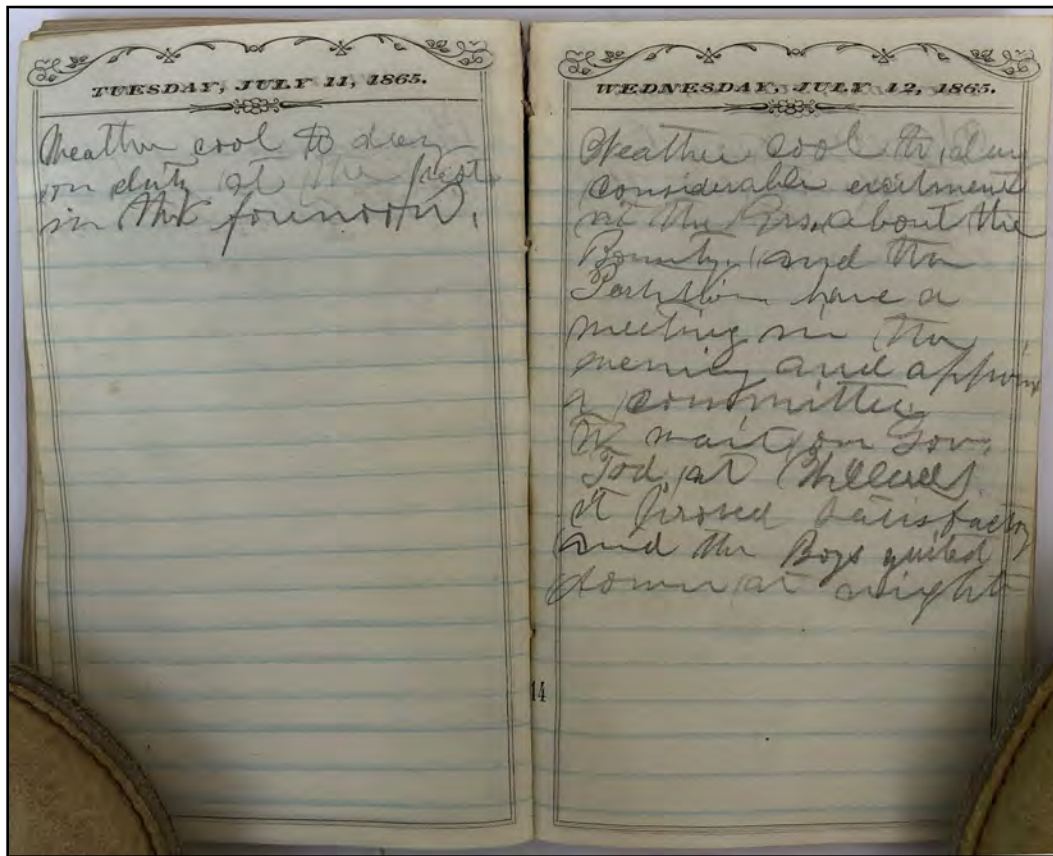 TUESDAY, JULY 11, 1865.
Weather cool to day
on duty at the
in the forenoon.
WEDNESDAY, JULY 12, 1865.
Weather cool to day
considerable excitment
at the about the
Bounty and the
have a
meeting in the
evening and appoint
a committee
to wait on Gov.
Tod at
it proved satisfactory
and the Boys quited
down at night
14